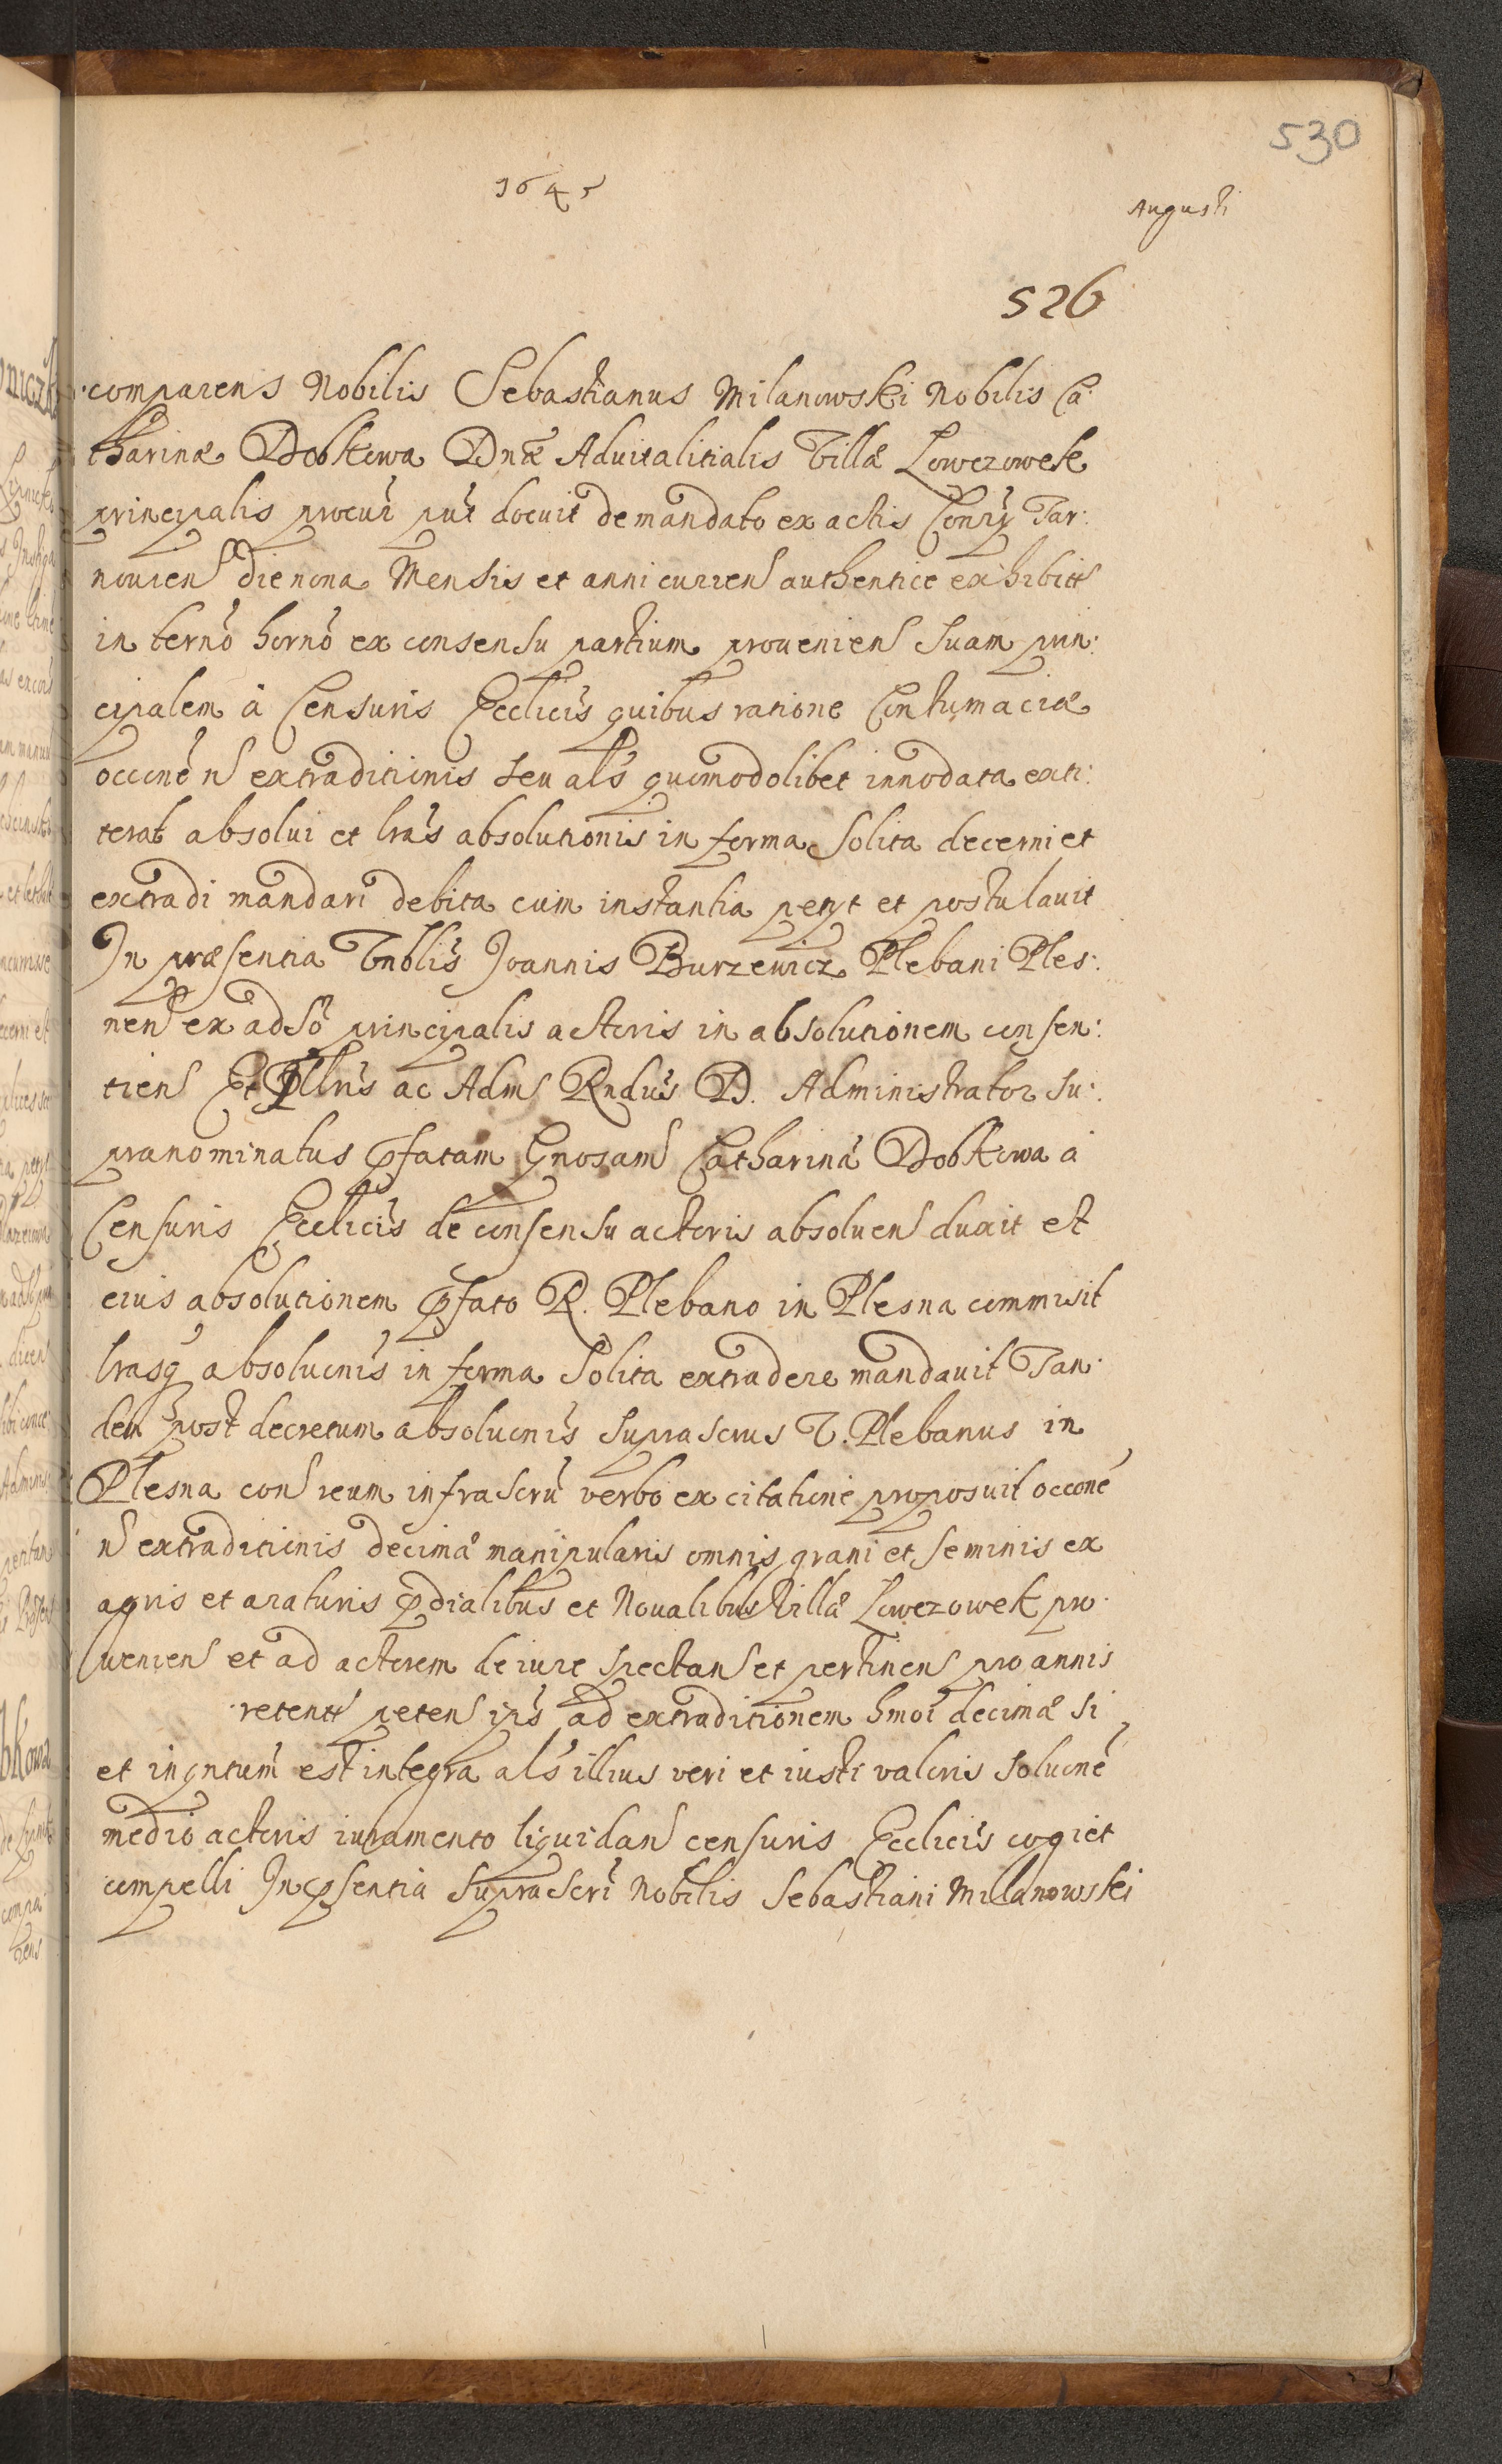 530
1645
Augusti
526
comparens Nobilis Sebastianus Milanowski Nobilis Ca:
tharinæ Dobkowa Dnæ Aduitalitialis Villæ Lowczowek
principalis procur put docuit de mandato ex actis Consrÿ Tar:
nouien die nona Mensis et anni curren authentice exhibitt
in termo horno ex consensu partium prouenien suam prin:
cipalem à Censuris Ecclicis quibus ratione Contumaciæ
occone n extraditionis seu als quomodolibet innodata exti:
terat absolui et lras absolutionis in forma solita decerni et
extradi mandari debita cum instantia petyt et postulauit
In præsentia Vnblis Joannis Burzewicz Plebani Ples:
nen ex adso principalis actoris in absolutionem consen:
tien Et Illris ac Adm Rndus D. Administrator su:
pranominatus pfatam Gnosam Catharinā Dobkowa à
Censuris Ecclicis de consensu actoris absoluen duxit et
eius absolutionem pfato R. Plebano in Plesna commisit
lrasq absolucnis in forma solita extradere mandauit Tan:
dem post decretum absolucnis suprascrus V. Plebanus in
Plesna con reum infrascru verbo ex citatione proposuit occone
n extraditionis decimæ manipularis omnis grani et seminis ex
agris et araturis pdialibus et Noualibus Villæ Lowczowek pro:
uenien et ad actorem de iure spectan et pertinen pro annis
retentt peten ips ad extraditionem hmoi decimæ si
et inqntum est integra als illius veri et iusti valoris solucne
medio actoris iuramento liquidan censuris Ecclicis cogi et
compelli In psentia suprascri Nobilis Sebastiani Milanowski